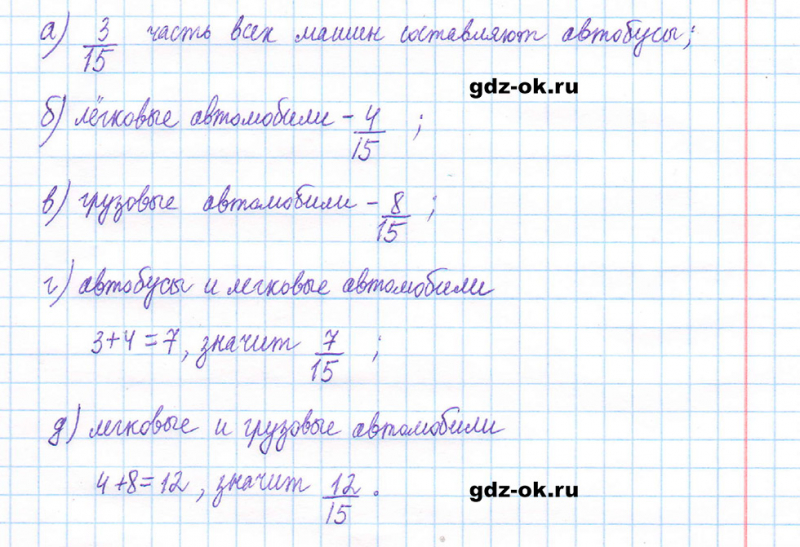 а) 3/15 часть всех машин составляют автобусы;
gdz-ok.ru
б) лёгковые автомобили - 4/15 ;
в) грузовые автомобили - 8/15 ;
г) автобусы и легковые автомобили
3+4=7, значит 7/15 ;
д) легковые и грузовые автомобили
4+8=12, значит 12/15 .
gdz-ok.ru